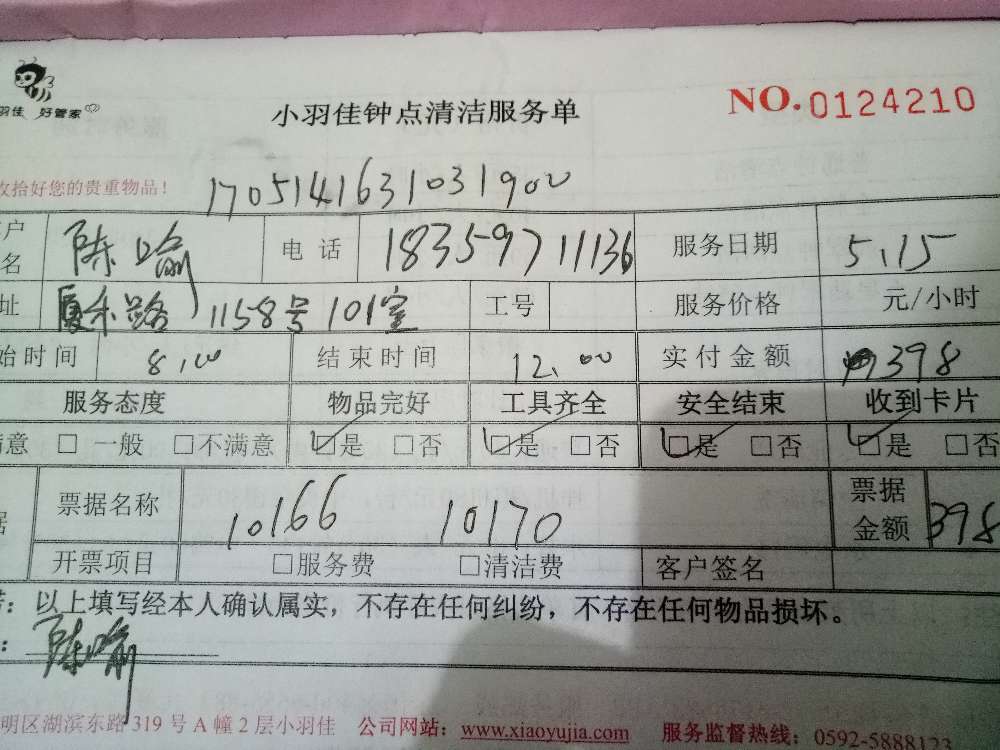 羽佳 好管家
小羽佳钟点清洁服务单
NO.0124210
收拾好您的贵重物品!
1705141631031900
客户名 陈喻 电话 18359711136 服务日期 5.15
址 厦禾路1158号101室 工号 服务价格 元/小时
始时间 8.00 结束时间 12.00 实付金额 398
服务态度 物品完好 工具齐全 安全结束 收到卡片
满意 □一般 □不满意 ☑是 □否 ☑是 □否 ☑是 □否 ☑是 □否
据 票据名称 10166 10170 票据金额 398
开票项目 □服务费 □清洁费 客户签名
诺:以上填写经本人确认属实,不存在任何纠纷,不存在任何物品损坏。
: 陈喻
明区湖滨东路319号A幢2层小羽佳 公司网站:www.xiaoyujia.com 服务监督热线:0592-5888123